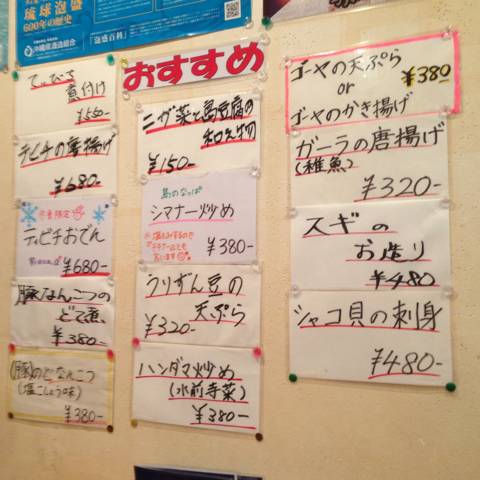 琉球泡盛
600年の歴史
沖縄県酒造組合
泡盛百科
てびち
煮付け
¥550-
テビチの唐揚げ
¥680-
冬季限定
ティビチおでん
¥680-
豚なんこつの
どて煮
¥380-
(豚)のどなんこつ
(塩こしょう味)
¥380-
おすすめ
ニガ菜と島豆腐の
和え物
¥150-
島のなっぱ
シマナー炒め
¥380-
うりずん豆の
天ぷら
¥320-
ハンダマ炒め
(水前寺菜)
¥380-
ゴーヤの天ぷら
or
¥380
ゴーヤのかき揚げ
ガーラの唐揚げ
(稚魚)
¥320-
スギの
お造り
¥480
シャコ貝の刺身
¥480-